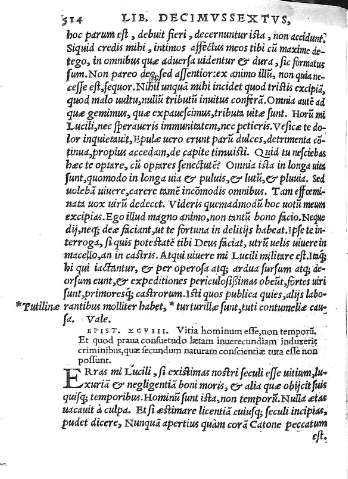 514 LIB. DECIMVSSEXTVS,
hoc parum est, debuit fieri, decernuntur ista, non accidunt.
Siquid credis mihi, intimos affectus meos tibi cũ maxime de-
tego, in omnibus quæ aduersa uidentur & dura, sic formatus
sum. Non pareo deo, sed assentior: ex animo illũ, non quia ne-
cesse est, sequor. Nihil unquã mihi incidet quod tristis excipiã,
quod malo uultu, nullũ tributũ inuitus conferã. Omnia autẽ ad
quæ gemimus, quæ expauescimus, tributa uitæ sunt. Horũ mi
Lucili, nec speraueris immunitatem, nec petieris. Vesicæ te do-
lor inquietauit, Epulæ uero erunt parũ dulces, detrimenta cõ-
tinua, propius accedam, de capite timuisti. Quid tu nesciebas
hæc te optare, cũ optares senectutẽ? Omnia ista in longa uita
sunt, quomodo in longa uia & puluis, & lutũ, & pluuia. Sed
uolebã uiuere, carere tamẽ incõmodis omnibus. Tam effœmi-
nata uox uirũ dedecet. Videris quemadmodũ hoc uotũ meum
excipias. Ego illud magno animo, non tantũ bono facio. Neque
dij, neq; deæ faciant, ut te fortuna in delitijs habeat. Ipse te in-
terroga, si quis potestatẽ tibi Deus faciat, utrũ uelis uiuere in
macello, an in castris. Atqui uiuere mi Lucili militare est. Itaq;
hi qui iactantur, & per operosa atq; ardua sursum atq; de-
orsum eunt, & expeditiones periculosissimas obeũt, fortes uiri
sunt, primoresq; castrorum. Isti quos publica quies, alijs labo-
*Tutilinæ rantibus molliter habet, *turturillæ sunt, tuti contumeliæ cau-
sa. Vale.
EPIST. XCVIII. Vitia hominum esse, non temporũ.
Et quod praua consuetudo lætam inuerecundiam induxerit
criminibus, quæ secundum naturam conscientiæ tuta esse non
possunt.
ERras mi Lucili, si existimas nostri seculi esse uitium, lu-
xuriã & negligentiã boni moris, & alia quæ obijcit suis
quisq; temporibus. Hominũ sunt ista, non temporũ. Nulla ætas
uacauit à culpa. Et si æstimare licentiã cuiusq; seculi incipias,
pudet dicere, Nunquã apertius quàm corã Catone peccatum
est.